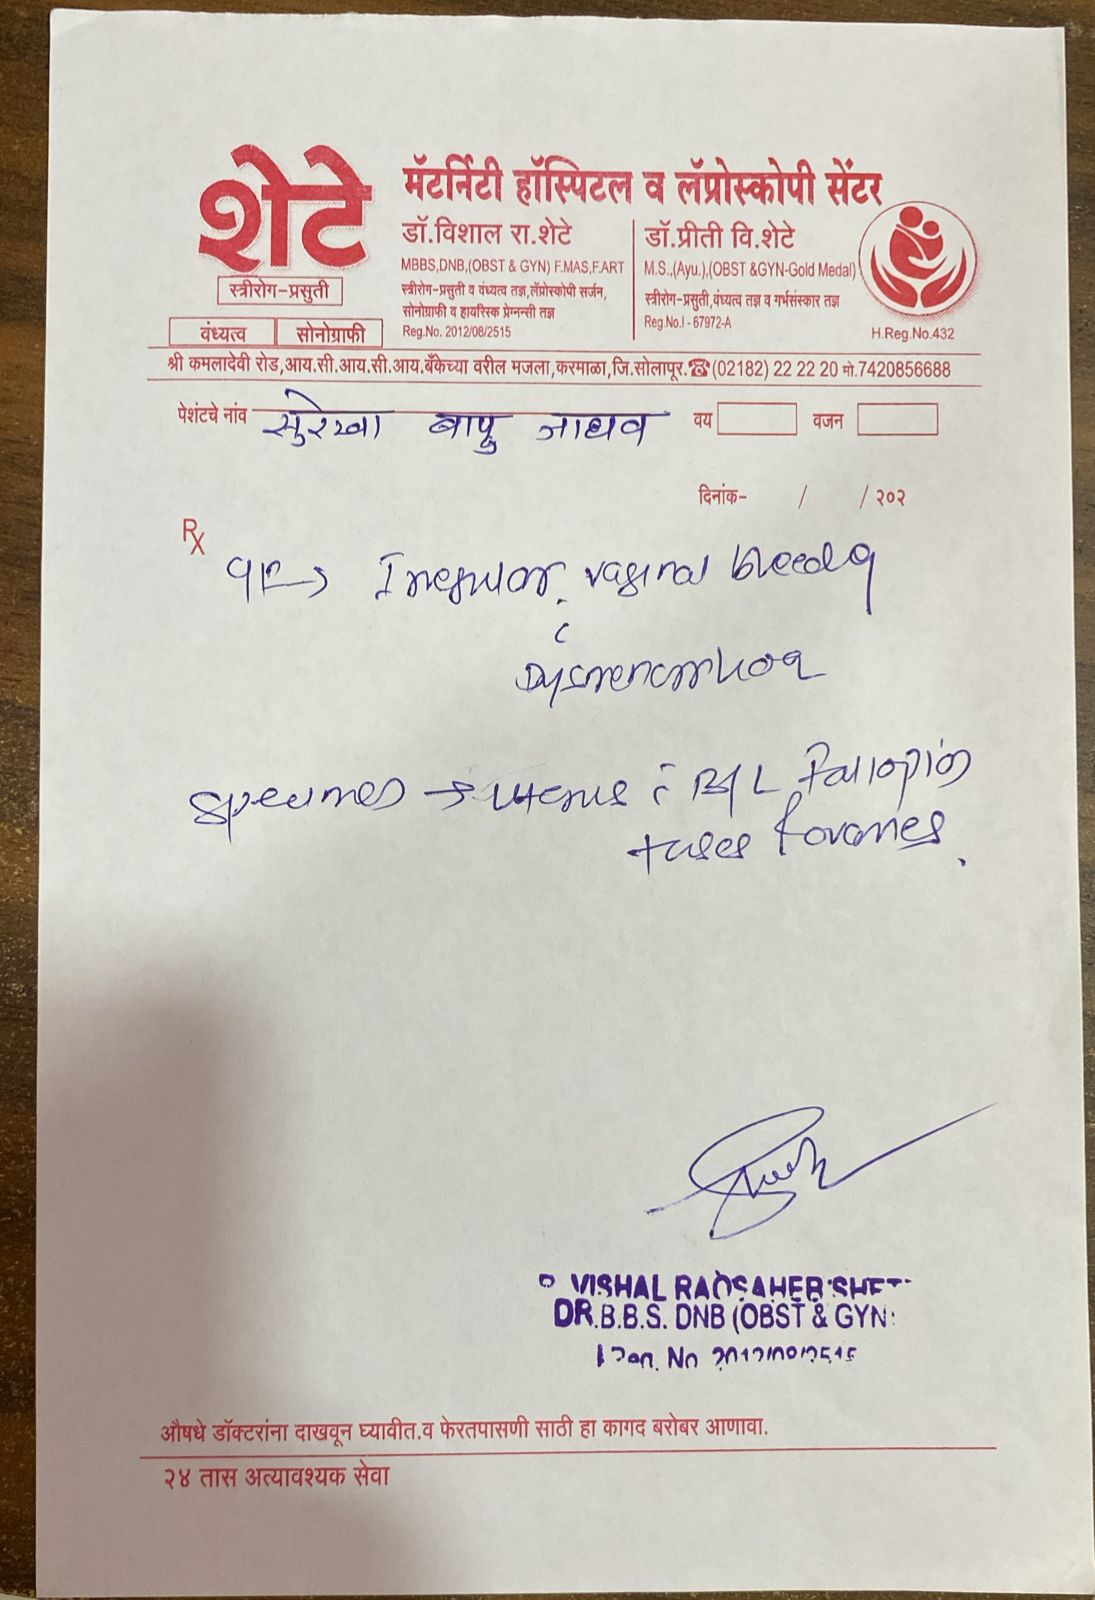 शेटे
मॅटर्निटी हॉस्पिटल व लॅप्रोस्कोपी सेंटर
स्त्रीरोग-प्रसुती
वंध्यत्व सोनोग्राफी
डॉ.विशाल रा.शेटे
MBBS,DNB,(OBST & GYN) F.MAS,F.ART
स्त्रीरोग-प्रसुती व वंध्यत्व तज्ञ,लॅप्रोस्कोपी सर्जन,
सोनोग्राफी व हायरिस्क प्रेग्नन्सी तज्ञ
Reg.No. 2012/08/2515
डॉ.प्रीती वि.शेटे
M.S.,(Ayu.),(OBST &GYN-Gold Medal)
स्त्रीरोग-प्रसुती,वंध्यत्व तज्ञ व गर्भसंस्कार तज्ञ
Reg.No.I - 67972-A
H.Reg.No.432
श्री कमलादेवी रोड,आय.सी.आय.सी.आय.बँकेच्या वरील मजला,करमाळा,जि.सोलापूर.☎(02182) 22 22 20 मो.7420856688
पेशंटचे नांव सुरेखा बापु जाधव वय वजन
दिनांक- / / २०२
Rx
Irregular vaginal bleedg
Dysmenorrhoea
specimen → uterus c̄ B/L Fallopian
tubes & ovaries.
VISHAL RAOSAHEB SHETE
DR.B.B.S. DNB (OBST & GYN
औषधे डॉक्टरांना दाखवून घ्यावीत.व फेरतपासणी साठी हा कागद बरोबर आणावा.
२४ तास अत्यावश्यक सेवा